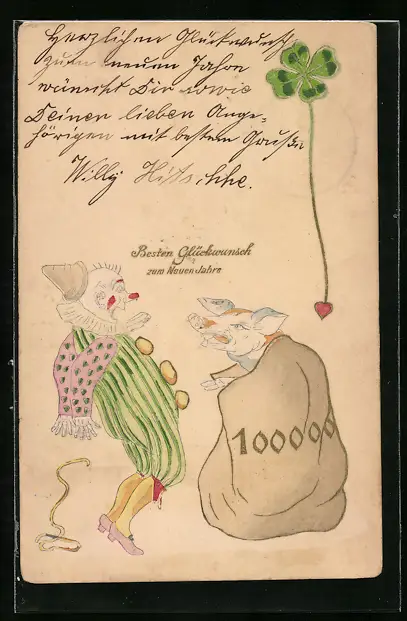 Herzlichen Glückwunsch
zum neuen Jahre
wünscht Dir sowie
Deinen lieben Ange=
hörigen mit bestem Gruße
Willy
Besten Glückwunsch
zum Neuen Jahre
100000